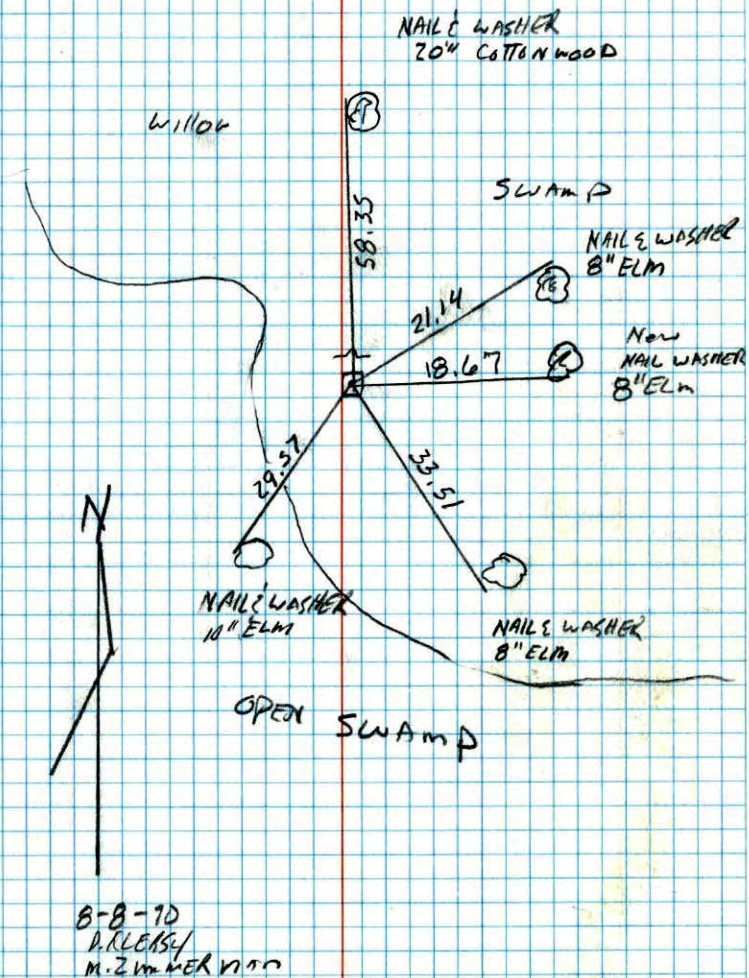 NAIL & WASHER
20" COTTONWOOD
Willow
58.35
SWAMP
NAIL & WASHER
8" ELM
21.14
New
NAIL WASHER
8" ELM
18.67
29.57
33.51
N
NAIL & WASHER
10" ELM
NAIL & WASHER
8" ELM
OPEN SWAMP
8-8-90
M. ZIMMERMAN